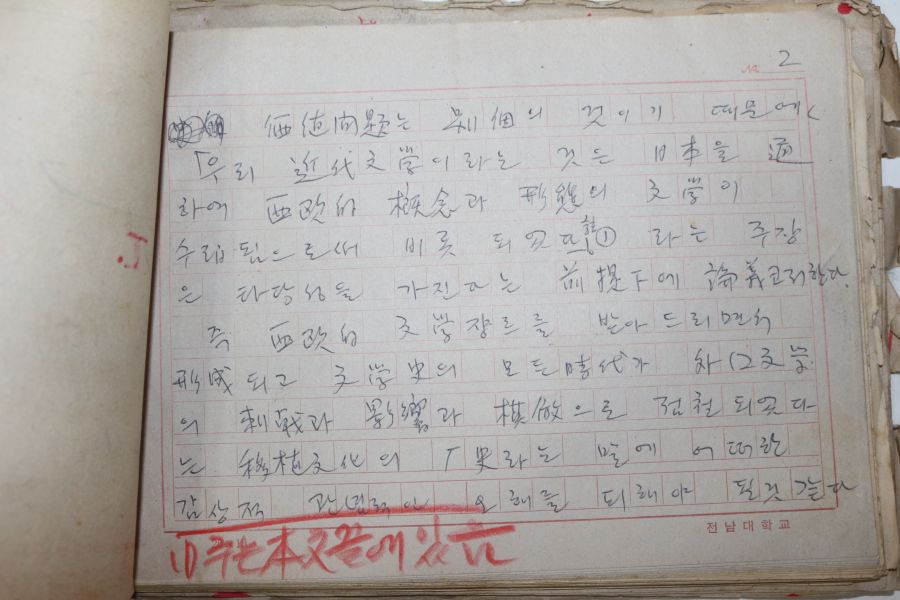 No. 2
價値問題는 別個의 것이기 때문에
「우리 近代文學이라는 것은 日本을 通
하여 西欧的 槪念과 形態의 文學이
수립됨으로써 비롯 되였다 註① 라는 주장
은 타당성을 가진다는 前提下에 論義코저한다.
즉 西欧的 文學쟝르를 받아 드리면서
形成되고 文學史의 모든時代가 外國文學
의 刺戟과 影響과 模倣으로 점철 되였다
는 移植文化의 歷史라는 말에 어떠한
감상적 관념적인 오해를 피해야 될것 같다
1) 주는 本文끝에 있음
전남대학교